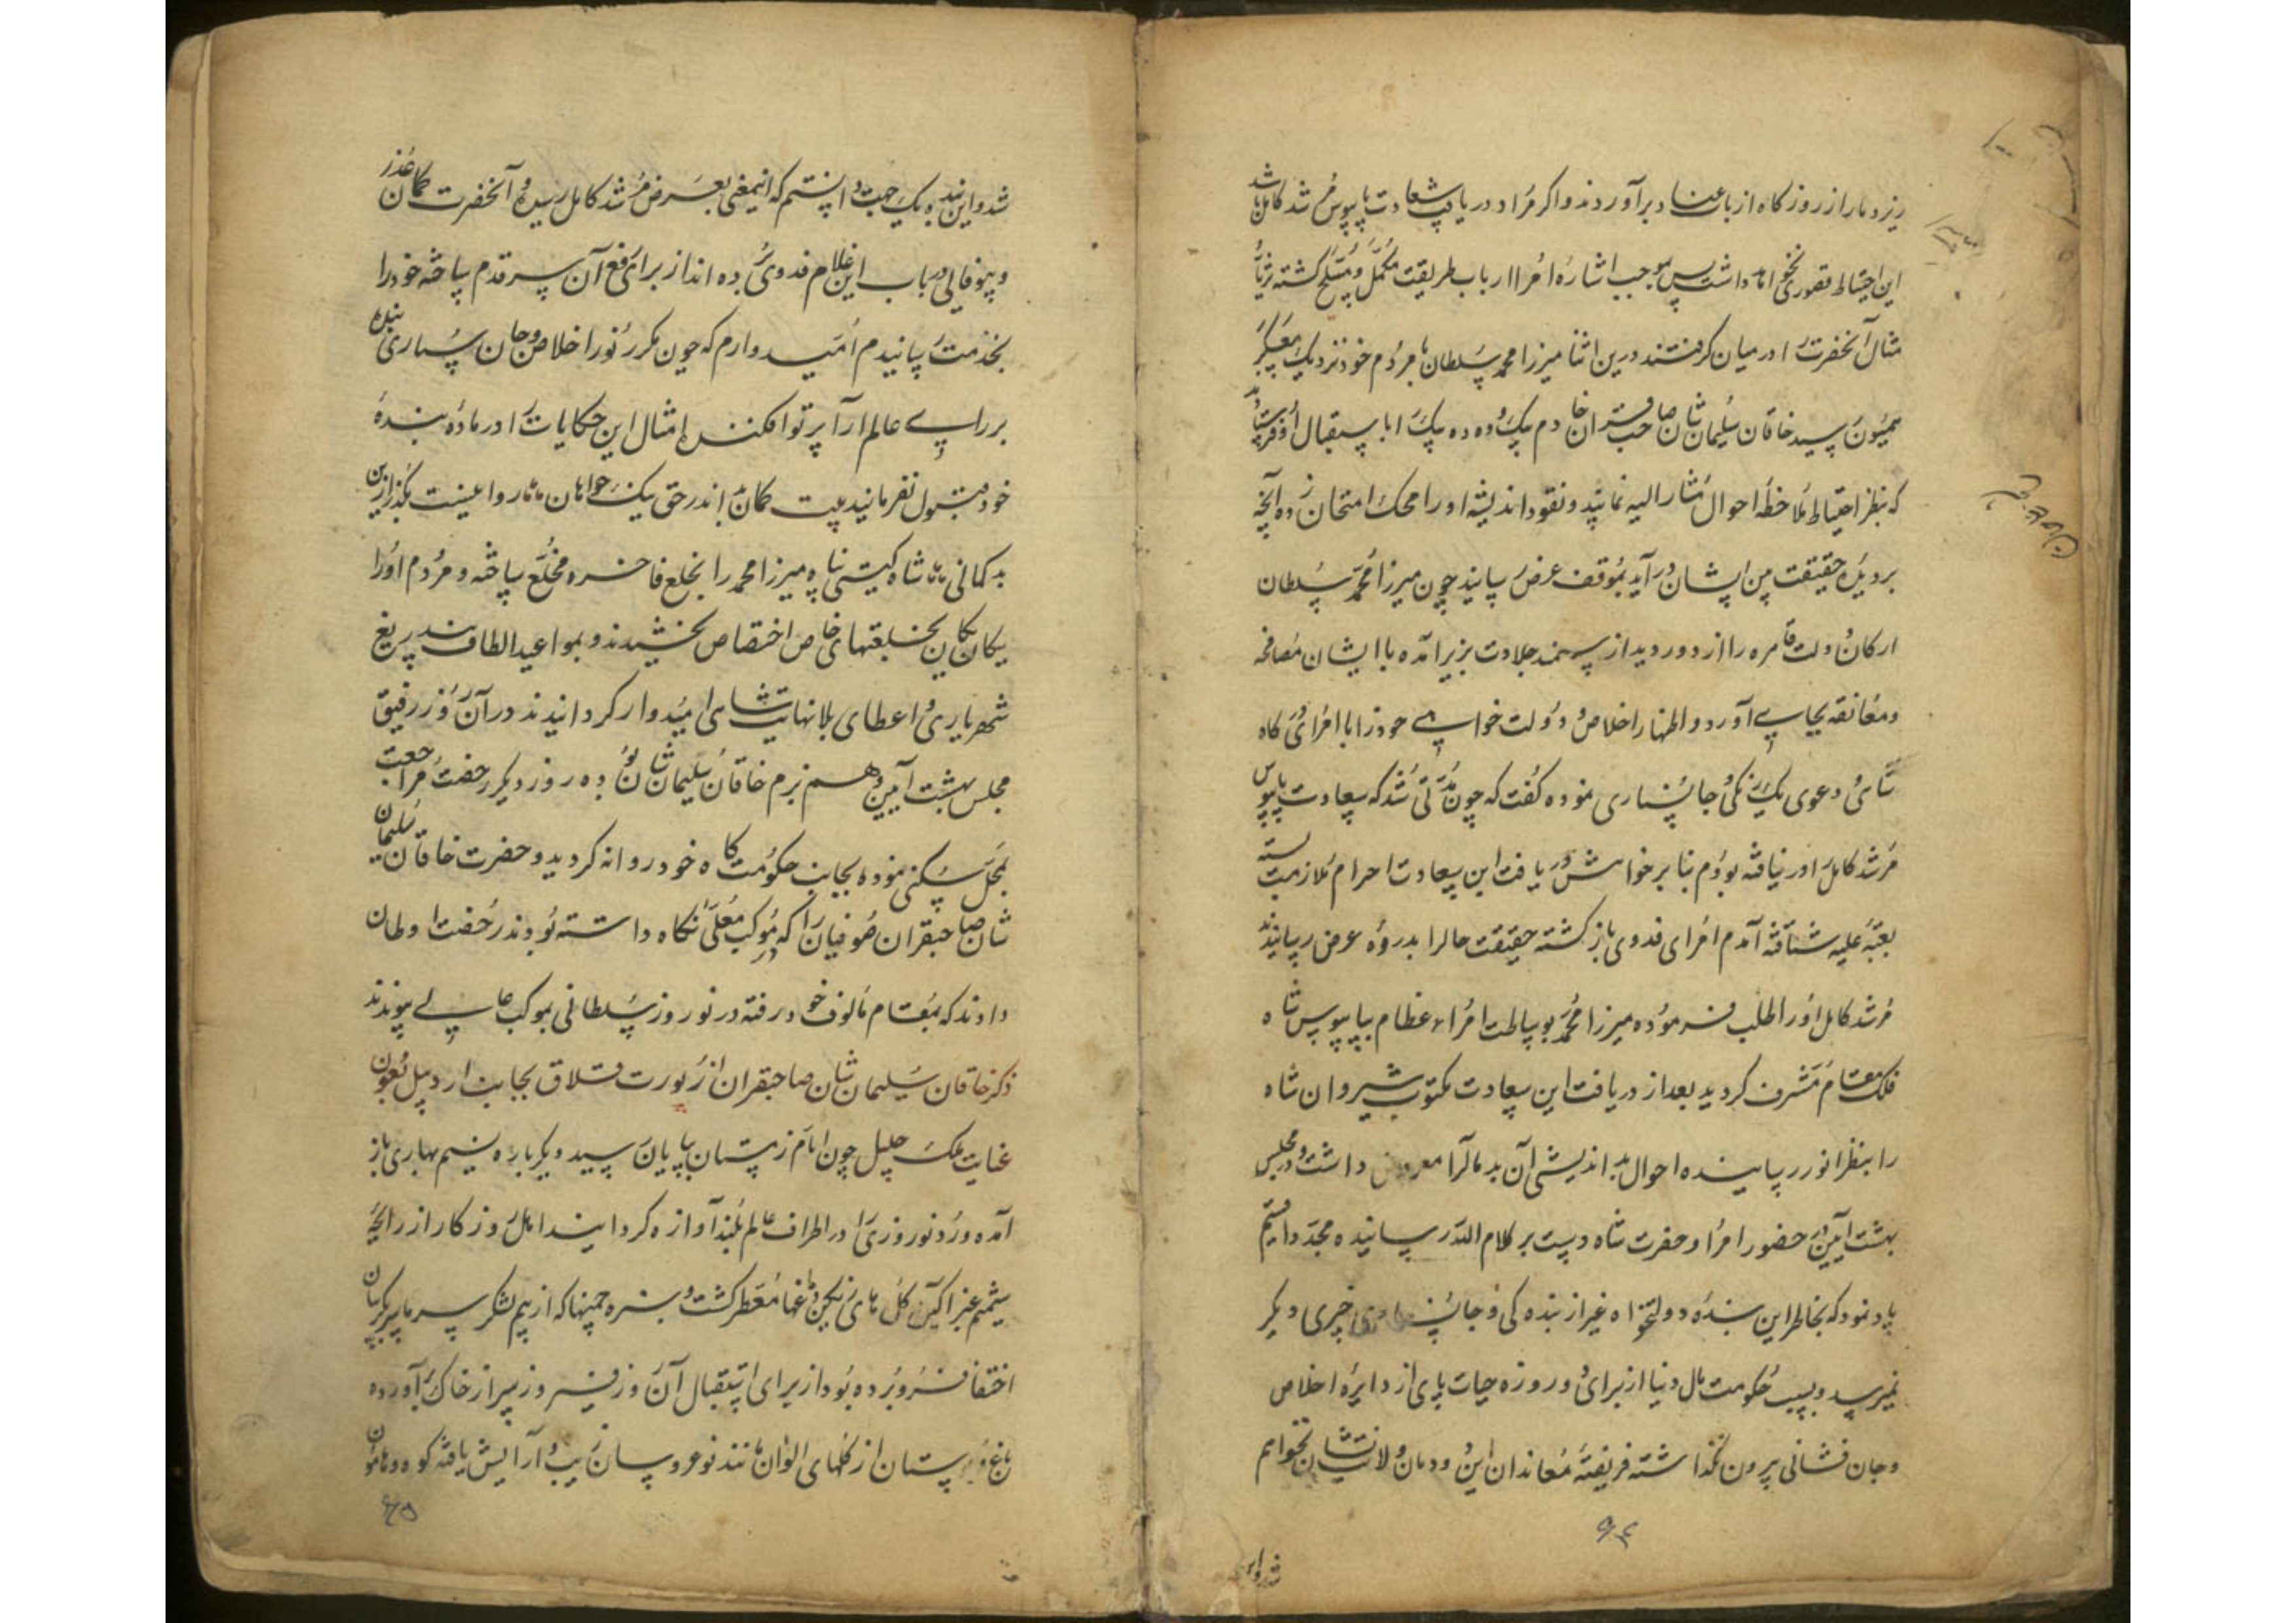 ریزد مار از روزگار ارباب عناد برآوردند و اگر مراد و دریافت سعادت پابوس مرشد کامل باشد
این احتیاط قصوری نخواهد داشت پس بموجب اشاره امرا ارباب طریقت مکمل و مسلح گشته
مثال آنحضرت را در میان گرفتند درین اثنا میرزا محمد سلطان با مردم خود نزدیک بمعسکر
همیون رسید خاقان سلیمان شان صاحبقران خادم بیک و ده ده بیک را باستقبال او فرستاد
که بنظر احتیاط ملاحظه احوال مشار الیه نمایند و نقود اندیشه او را محک امتحان زده آنچه
بر دیده حقیقت بین ایشان درآید بموقف عرض رسانند چون میرزا محمد سلطان
ارکان دولت قاهره را از دور دید از سمند جلادت بزیر آمده با ایشان مصافحه
و معانقه بجای آورد و اظهار اخلاص و دولت خواهی خود را با امرای درگاه
شاهی و دعوی یکرنگی و جانسپاری نموده گفت که چون مدتی شد که سعادت پابوس
مرشد کامل را در نیافته بودم بنا بر خواهش دریافت این سعادت احرام ملازمت بسته
بعتبه علیه شتافته آمدم امرای فدوی بازگشته حقیقت حالرا بذروه عرض رسانیدند
مرشد کامل او را طلب فرموده میرزا محمد بوساطت امراء عظام بپابوس شاه
فلک مقام مشرف گردید بعد از دریافت این سعادت مکتوب شیروان شاه
را بنظر انور رسانیده احوال بد اندیشی آن بدمآل را معروض داشت و در مجلس
بهشت آیین در حضور امرا و حضرت شاه دست بر کلام الله رسانیده مجددا قسم
یاد نمود که بخاطر این بنده دولتخواه غیر از بندگی و جانسپاری چیزی دیگر
نمیرسد و بسبب حکومت مال دنیا از برای دو روزه حیات پای از دایره اخلاص
و جان فشانی بیرون نگذاشته فریفته معاندان این دودمان ولایت نشان نخواهم
۶۴
شد و این
شد و این بنده یک جهت دانستم که اینمعنی بعرض مرشد کامل رسیده و آنحضرت گمان غدر
و بیوفایی در باب این غلام فدوی برده اند از برای رفع آن سر قدم ساخته خود را
بخدمت رسانیدم امیدوارم که چون مکرر نور اخلاص و جان سپاری بنده
بر رای عالم آرا پرتو افکند امثال این حکایات را در ماده بنده
خود قبول نفرمایند بیت گمان بد اندر حق نیک خواهان روا نیست بگذر ازین
بد گمانی شاه گیتی پناه میرزا محمد را بخلع فاخره مخلع ساخته و مردم او را
یکان یکان بخلعتهای خاص اختصاص بخشیدند و بمواعید الطاف بیدریغ
شهریاری و اعطای بلانهایت شاهی امیدوار گردانیدند در آن روز رفیق
مجلس بهشت آیین و هم بزم خاقان سلیمان شان بوده روز دیگر رخصت مراجعت
بمحل سکنی نموده بجانب حکومت گاه خود روانه گردید و حضرت خاقان سلیمان
شان صاحبقران صوفیان را که در موکب معلی نگاه داشته بودند رخصت اوطان
دادند که بمقام مالوف خود رفته در نوروز سلطانی بموکب عالی پیوندند
ذکر خاقان سلیمان شان صاحبقران از یورت قشلاق بجانب اردبیل بعون
عنایت ملک جلیل چون ایام زمستان بپایان رسید و دیگر باره نسیم بهاری باز
آمده ورود نوروزی را در اطراف عالم بلند آوازه گردانیند اهل روزگار از رایحه
شمیم عنبر آگین گل های رنگین دماغها معطر گشت و سبزه چمنها که از بیم لشکر سرما
اختفا فرو برده بود از برای استقبال آن روز فیروز سر از خاک برآورده
باغ و بوستان از گلهای الوان مانند نوعروسان زیب و آرایش یافته کوه و هامون
۶۵